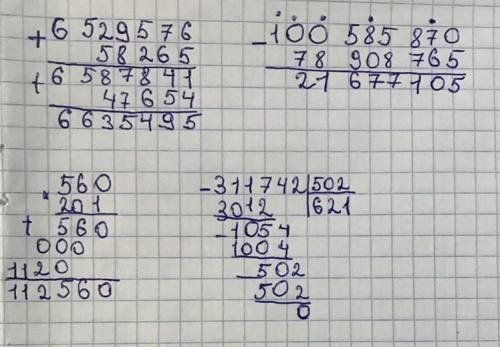 + 6 529576
58265
+ 6 587841
47654
6635495
- 100 585 870
78 908 765
21 677105
× 560
201
+ 560
000
1120
112560
- 311742 | 502
3012 | 621
- 1054
1004
- 502
502
0